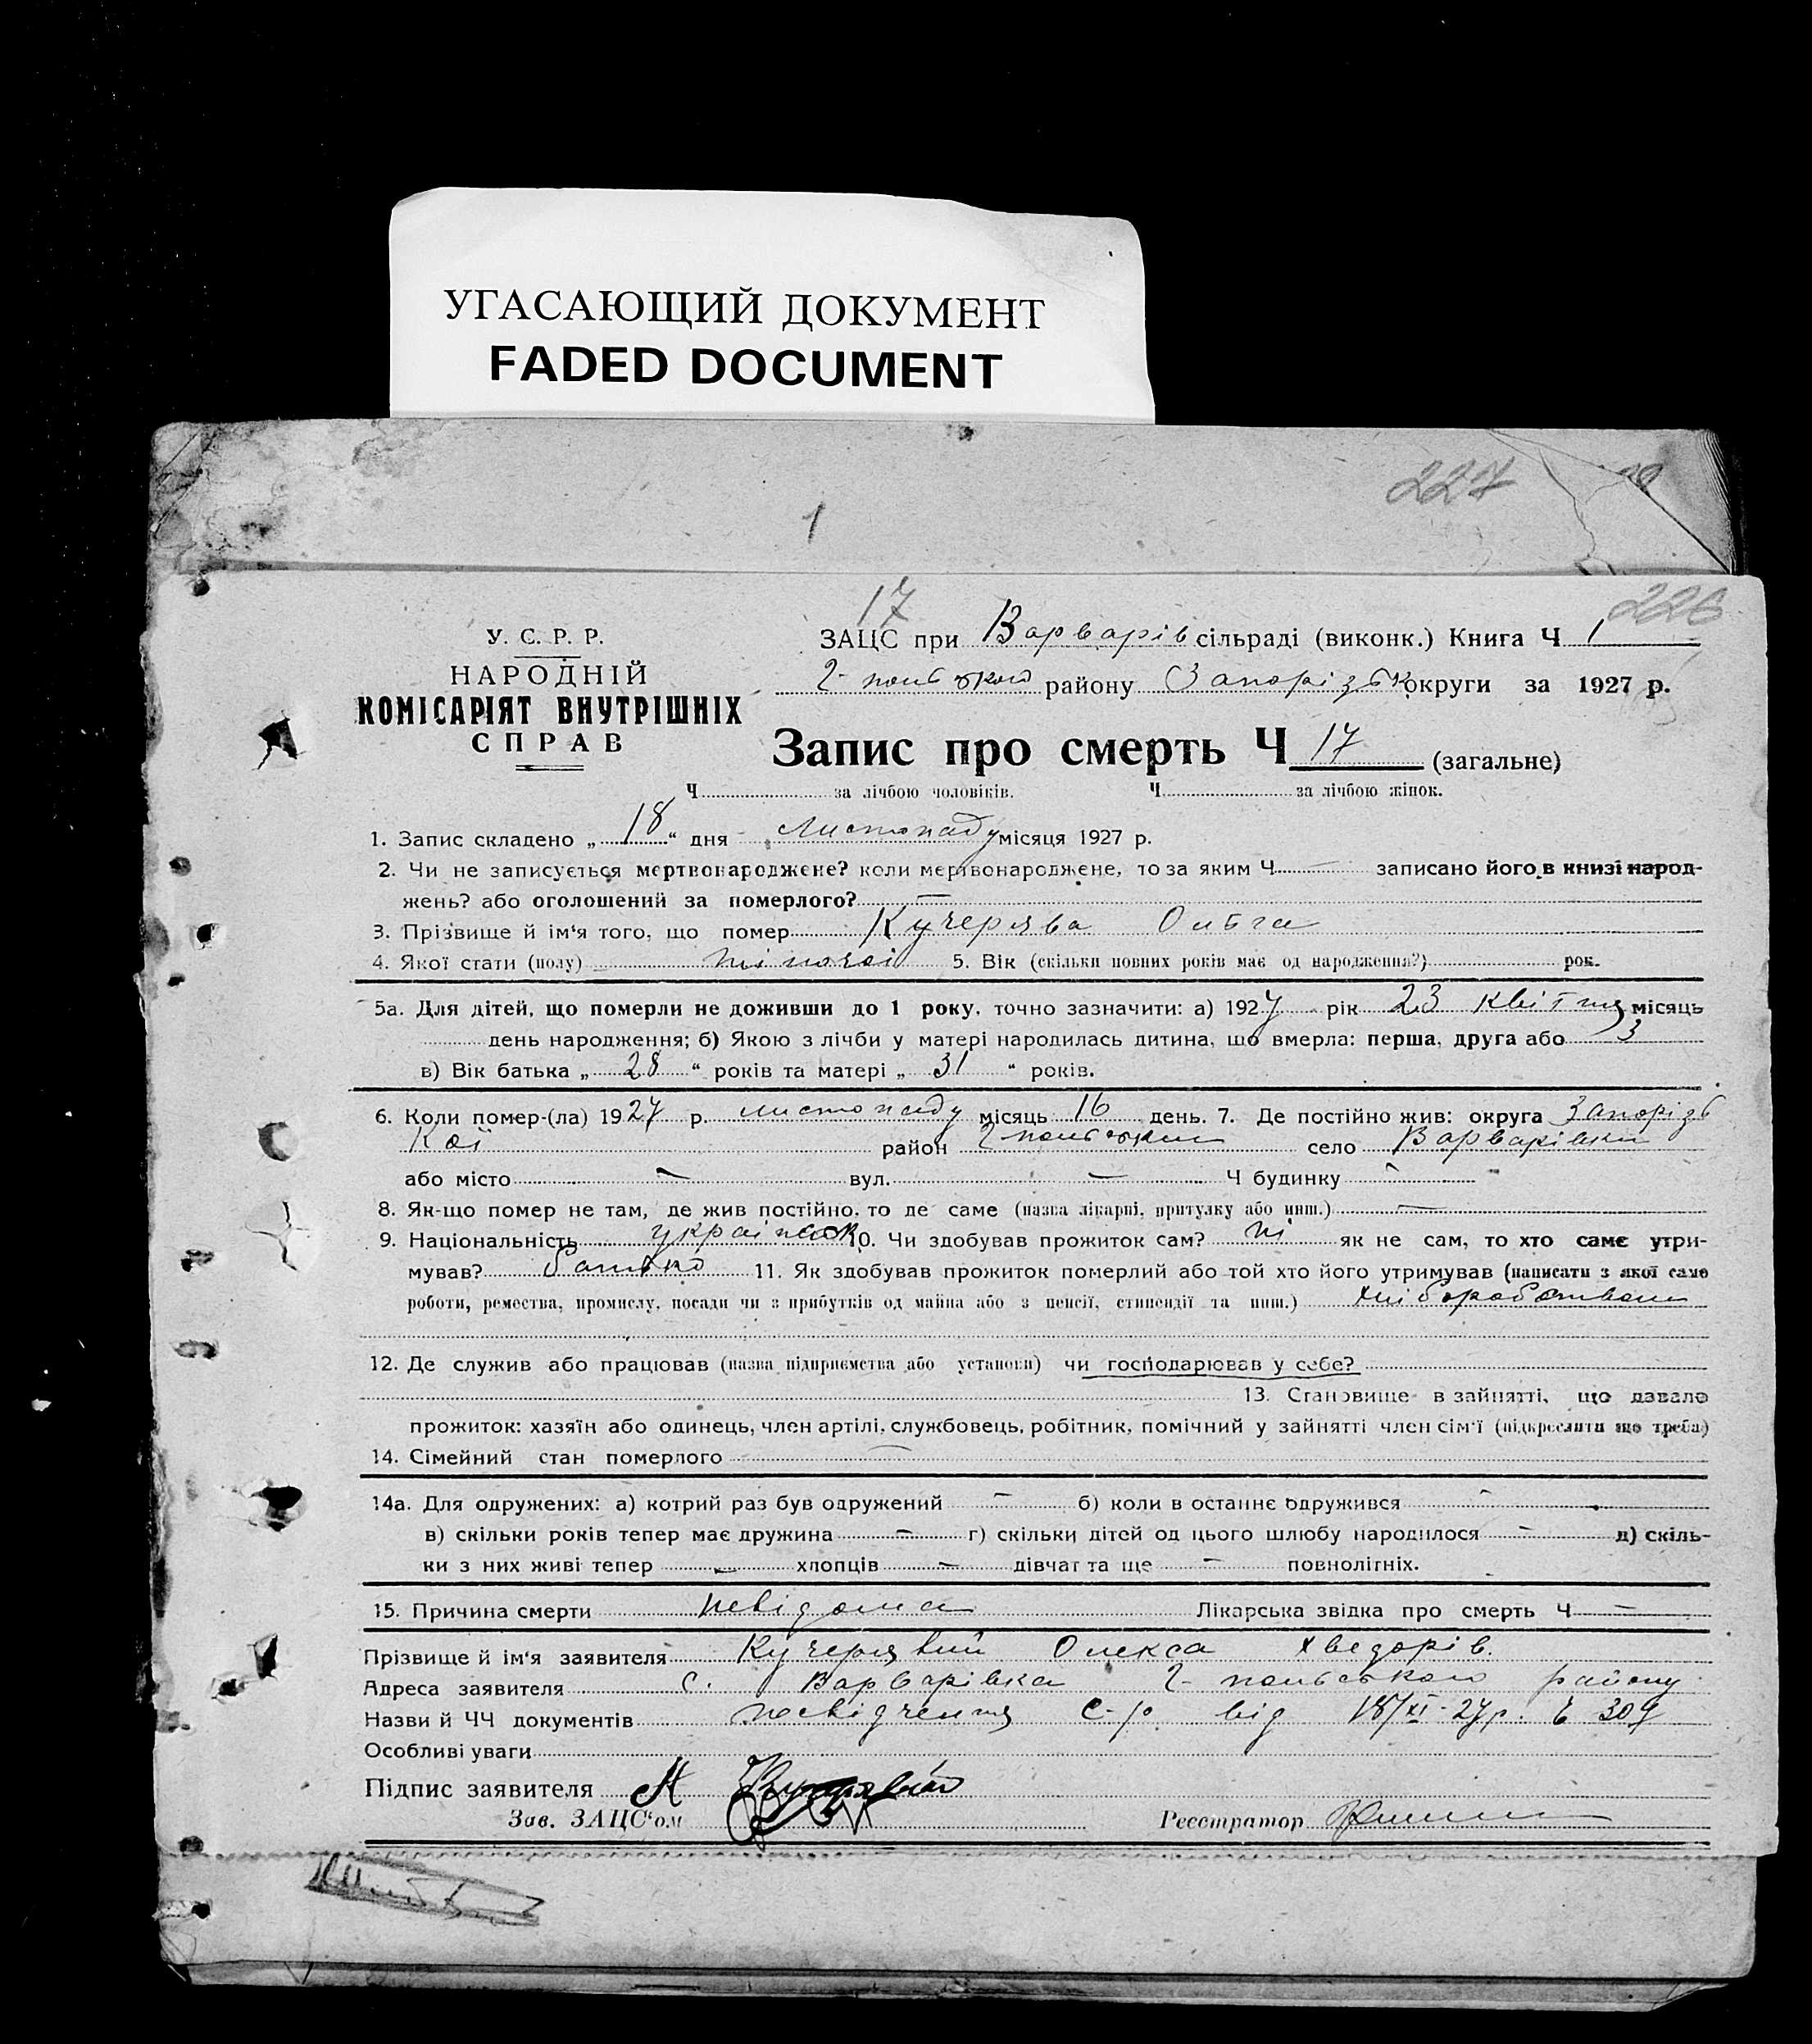 УГАСАЮЩИЙ ДОКУМЕНТ
FADED DOCUMENT
227
1
226
17
У. С. Р. Р.
НАРОДНІЙ
КОМІСАРІЯТ ВНУТРІШНІХ
СПРАВ
ЗАЦС при Варварів сільраді (виконк.) Книга Ч 1
Г-польського району Запорізьк округи за 1927 р.
Запис про смерть Ч 17 (загальне)
Ч за лічбою чоловіків. Ч за лічбою жінок.
1. Запис складено „ 18 “ дня листопаду місяця 1927 р.
2. Чи не записується мертвонароджене? коли мертвонароджене, то за яким Ч — записано його в книзі народ-
жень? або оголошений за померлого? —
3. Прізвище й ім'я того, що помер Кучерява Ольга
4. Якої стати (полу) жіночої 5. Вік (скільки повних років має од народження?) рок.
5а. Для дітей, що померли не доживши до 1 року, точно зазначити: а) 1927 рік 23 квітня місяць
день народження; б) Якою з лічби у матері народилась дитина, що вмерла: перша, друга або 3
в) Вік батька „ 28 “ років та матері „ 31 “ років.
6. Коли помер-(ла) 1927 р. листопаду місяць 16 день. 7. Де постійно жив: округа Запорізь
кої район Г-польський село Варварівка
або місто — вул. — Ч будинку —
8. Як-що помер не там, де жив постійно, то де саме (назва лікарні, притулку або инш.) —
9. Національність українськ 10. Чи здобував прожиток сам? ні як не сам, то хто саме утри-
мував? батько 11. Як здобував прожиток померлий або той хто його утримував (написати з якої саме
роботи, ремества, промислу, посади чи з прибутків од майна або з пенсії, стипендії та инш.) хліборобством
12. Де служив або працював (назва підприємства або установи) чи господарював у себе?
13. Становище в зайнятті, що давало
прожиток: хазяїн або одинець, член артілі, службовець, робітник, помічний у зайнятті член сім'ї (підкреслити що треба)
14. Сімейний стан померлого —
14а. Для одружених: а) котрий раз був одружений — б) коли в останнє одружився —
в) скільки років тепер має дружина — г) скільки дітей од цього шлюбу народилося — д) скіль-
ки з них живі тепер — хлопців — дівчат та ще — повнолітніх.
15. Причина смерти невідома Лікарська звідка про смерть Ч —
Прізвище й ім'я заявителя Кучерявий Олекса Хведорів.
Адреса заявителя с. Варварівка Г-польського району
Назви й ЧЧ документів посвідчення С-р. від 18/XI-27р. Ч 309
Особливі уваги
Підпис заявителя
Зав. ЗАЦС'ом Реєстратор